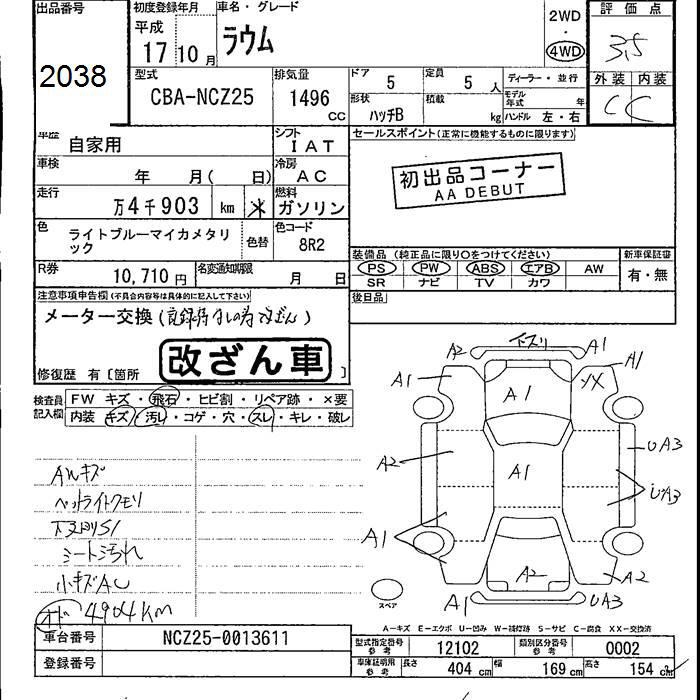 出品番号
2038
初度登録年月
平成
17 10月
車名・グレード
ラウム
2WD
・
4WD
評価点
3.5
外装 内装
C C
型式
CBA-NCZ25
排気量
1496
CC
ドア
5
定員
5 人
ディーラー・並行
形状
ハッチB
積載
kg
モデル年式
年
ハンドル 左・右
車歴
自家用
シフト
IAT
セールスポイント(正常に機能するものに限ります)
車検
年 月( 日)
冷房
AC
初出品コーナー
AA DEBUT
走行
万4千903 km
燃料
ガソリン
色
ライトブルーマイカメタリ
ック
色替
色コード
8R2
装備品 (純正品に限り○をつけてください)
新車保証書
PS PW ABS エアB AW
SR ナビ TV カワ
有・無
R券
10,710 円
名変通知期限
月 日
後日品
注意事項申告欄(不具合内容等は具体的に記入して下さい)
メーター交換
改ざん車
修復歴 有〔箇所 〕
検査員
記入欄
FW キズ・飛石・ヒビ割・リペア跡・×要
内装 キズ・汚レ・コゲ・穴・スレ・キレ・破レ
AWキズ
ヘッドライトクモリ
シート汚れ
小キズAU
4904KM
下スリ
A2
A1
A1
A1
A1
XX
A2
A1
UA3
UA3
A1
A2
A2
A1
UA3
スペア
A―キズ E―エクボ U―凹み W―補修跡 S―サビ C―腐食 XX―交換済
車台番号
NCZ25-0013611
登録番号
型式指定番号
参考
12102
類別区分番号
参考
0002
車庫証明用
参考
長さ
404 cm
幅
169 cm
高さ
154 cm